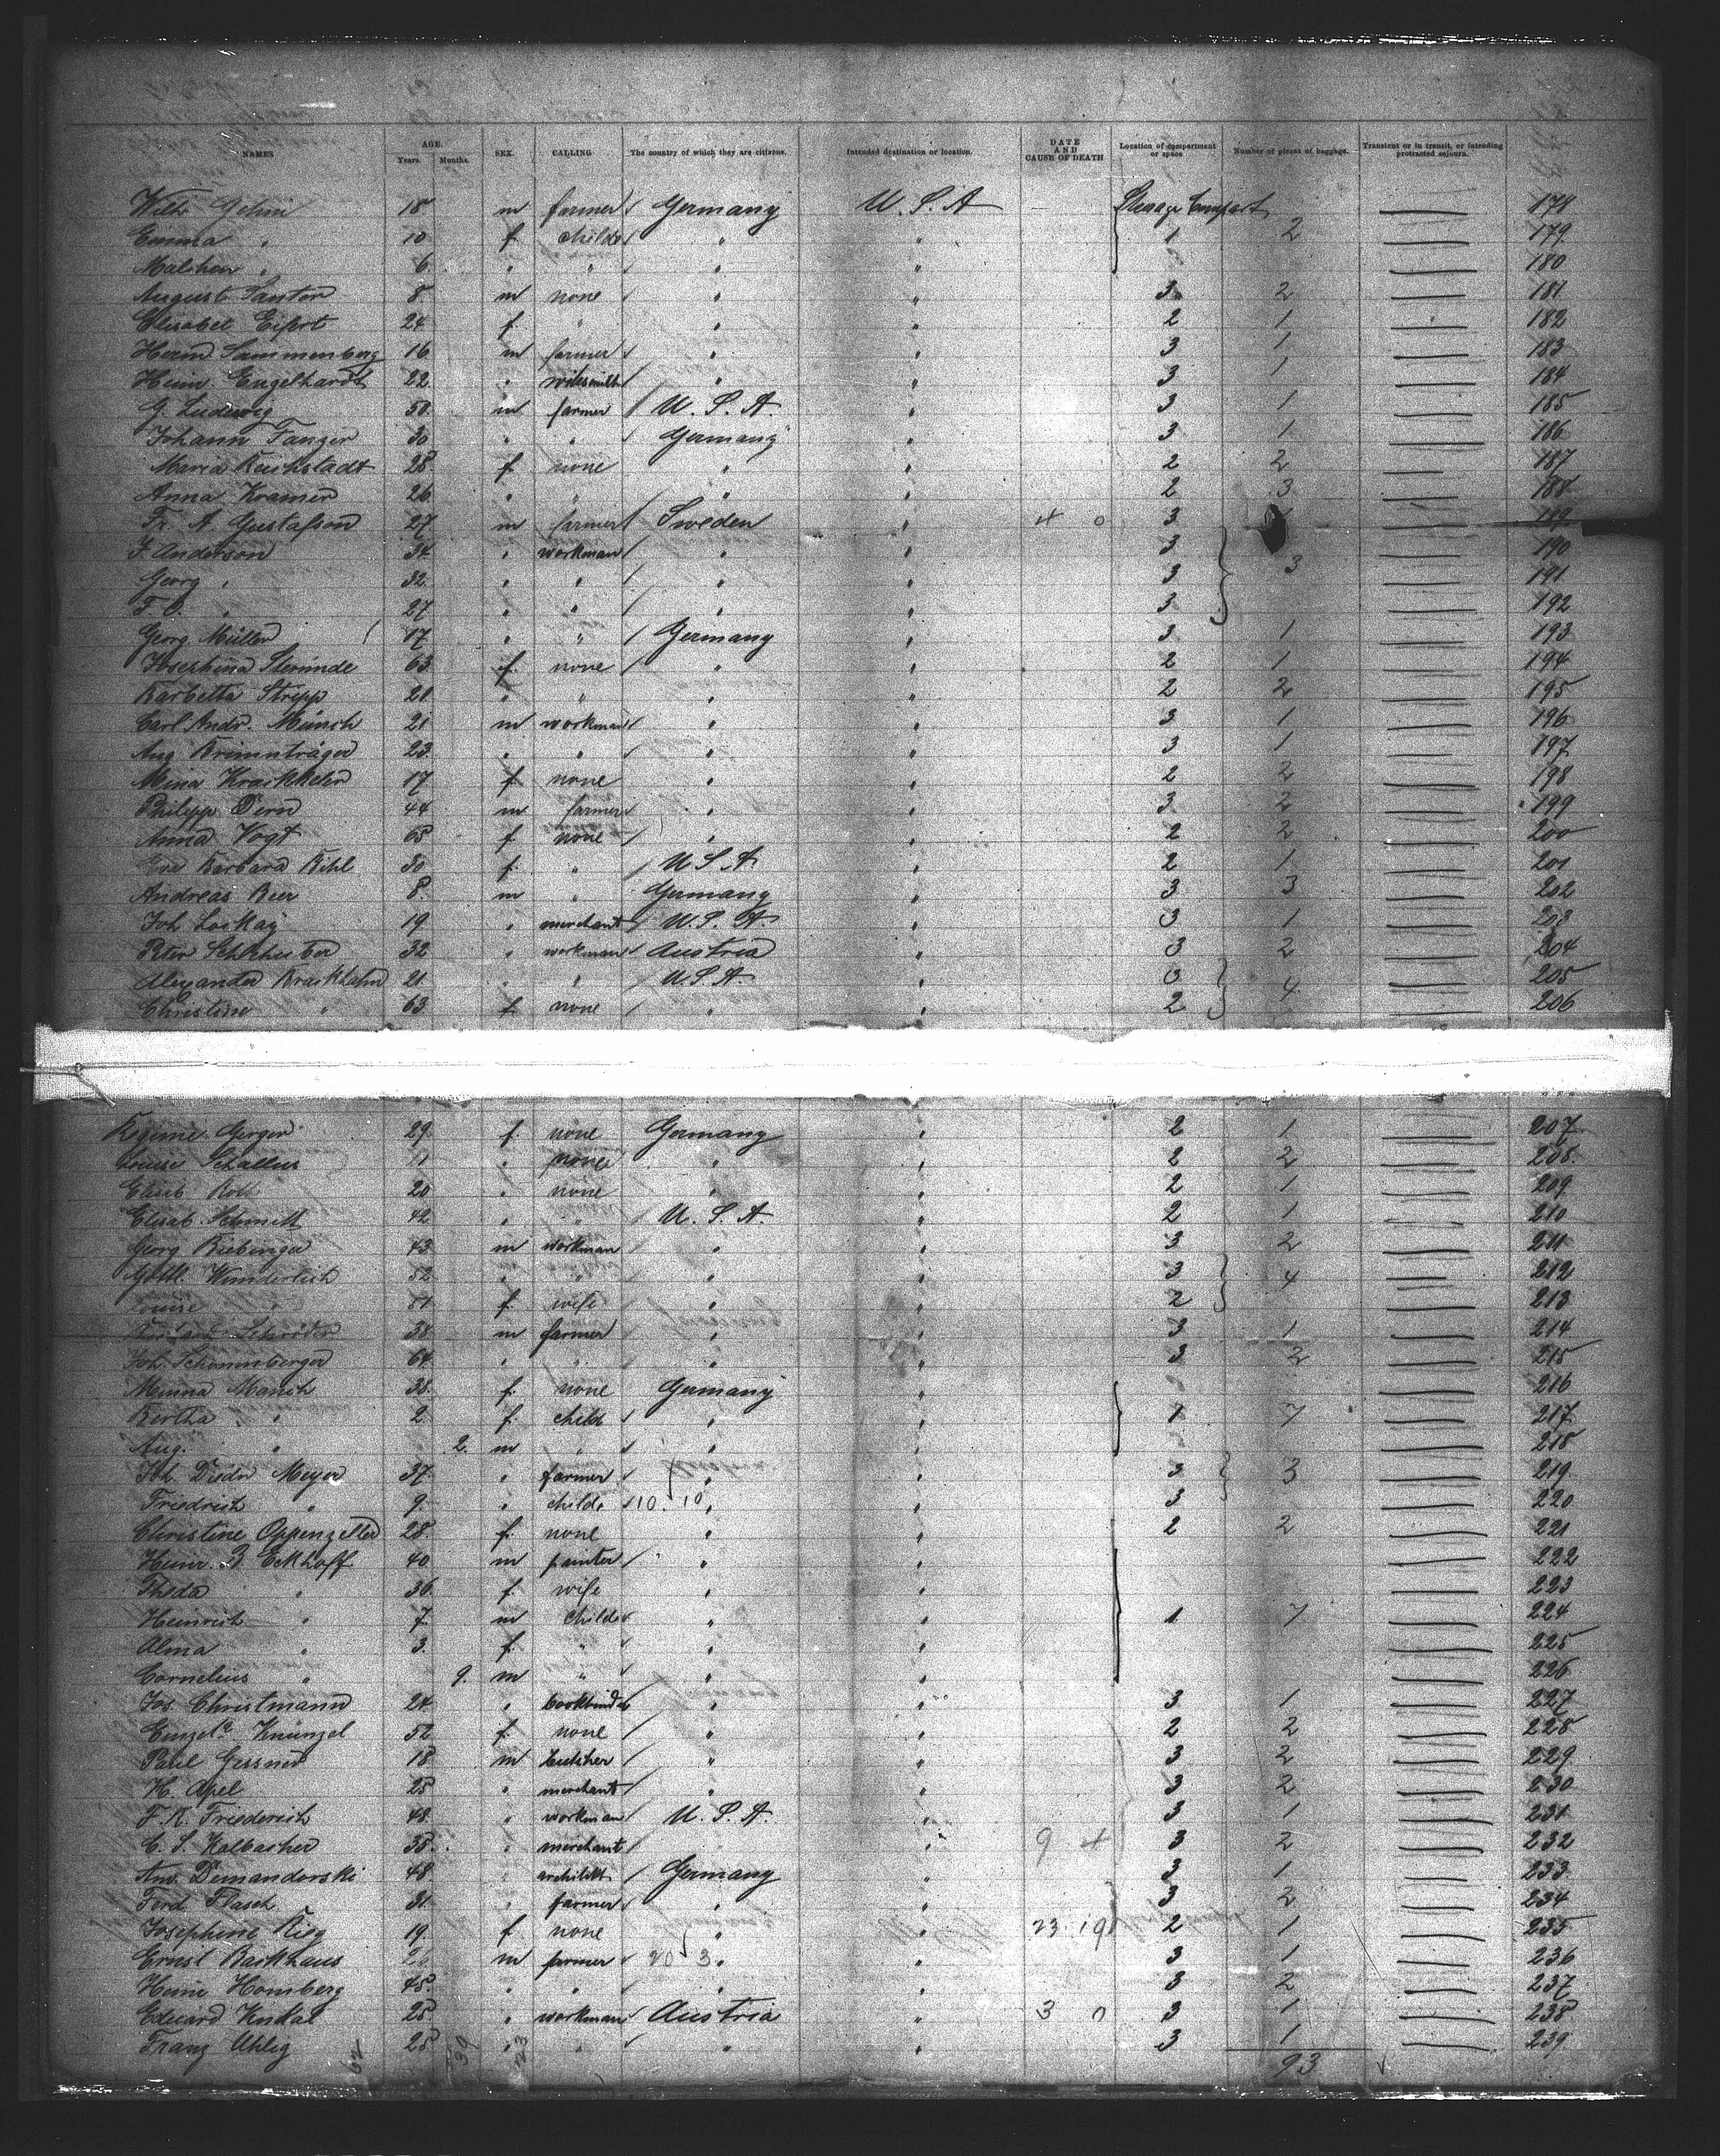 NAMES AGE. Years. Months. SEX. CALLING The country of which they are citizens. Intended destination or location. DATE AND CAUSE OF DEATH Location of compartment or space Number of pieces of baggage. Transient or in transit, or intending protracted sojourn.
18 m farmer Germany U. S. A 178
Emma " 10 f. child " " 1 2 179
Malchen " 6 " " " " 180
August Santor 8 m none " " 3 2 181
Elisabet 24 f. " " " 2 1 182
Herm Sammenberg 16 m farmer " " 3 1 183
Heinr. Engelhardt 22 " " " 3 1 184
G. Ludwig 50 m farmer U. S. A. " 3 1 185
Johann Tanger 30 " " Germany " 3 1 186
Maria Reichstadt 28 f. none " " 2 2 187
Anna Kramer 26 " " " " 2 3 188
Fr. A. Gustafson 27 m farmer Sweden " 4 0 3 189
J. Anderson 34 " workman " " 3 190
Georg " 32 " " " " 3 3 191
F. C. " 27 " " " " 3 192
Georg Müller 17 " " Germany " 3 1 193
Josephina 63 f. none " " 2 1 194
Barbetta Stripp 21 " " " " 2 2 195
Carl Andr. Münch 21 m workman " " 3 1 196
Aug 23 " " " " 3 1 197
Mina 17 f none " " 2 2 198
Philipp Dern 44 m farmer " " 3 2 199
Anna Vogt 65 f none " " 2 2 200
Eva Barbara Bihl 30 f. " U S A " 2 1 201
Andreas Beer 8 m " Germany " 3 3 202
Joh Lockay 19 " merchant U. S. A. " 3 1 203
Peter 32 " workman Austria " 3 2 204
Alexander 21 " " U. S. A. " 3 4 205
Christine " 63 f. none " " 2 206
Regine Gerger 29 f. none Germany " 2 1 207
Louise Schallus " none " " 2 2 208
Elisab Roth 20 " none " " 2 1 209
Elisab. Schmitt 42 " " U. S. A. " 2 1 210
Georg Biebinger 43 m workman " " 3 2 211
Gottl. Wunderlich 52 " " " " 3 4 212
Louise " 51 f. wife " " 2 213
Schröder 38 m farmer " " 3 1 214
Joh. Schönenberger 64 " " " " 3 2 215
Minna Manch 38 f. none Germany " 216
Bertha " 2 f. child " " 1 7 217
Aug. " 2. m " " " 218
Joh. Diedr Meyer 37 " farmer " " 3 3 219
Friedrich " 9 " child 10 10 " " 3 220
Christine Oppenzeller 28 f. none " " 2 2 221
Heinr. B Eckhoff 40 m painter " " 222
Theda " 36 f. wife " " 223
Heinrich " 7 m child " " 1 7 224
Alma " 3. f. " " " 225
Cornelius " 9. m " " " 226
Jos. Christmann 24 " bookbinder " " 3 1 227
Künzel 52 f. none " " 2 2 228
Paul Gessner 18 m butcher " " 3 2 229
H. Apel 25 " merchant " " 3 2 230
F. K. Friederich 48 " workman U. S. A. " 3 1 231
C. S. Kalbacher 38 " merchant " " 9 4 3 2 232
Demandorski 48 " architekt Germany " 3 1 233
Ferd Flasch 31 " farmer " " 3 2 234
Josephine Rieg 19 f. none " " 23 19 2 1 235
Ernst Backhaus m farmer 20 3 " " 3 1 236
Heinr Homberg 48 " " " " 3 2 237
Eduard 25 " workman Austria " 3 0 3 1 238
Franz Uhlig 25 " " " " 3 1 239
62 39 23 93